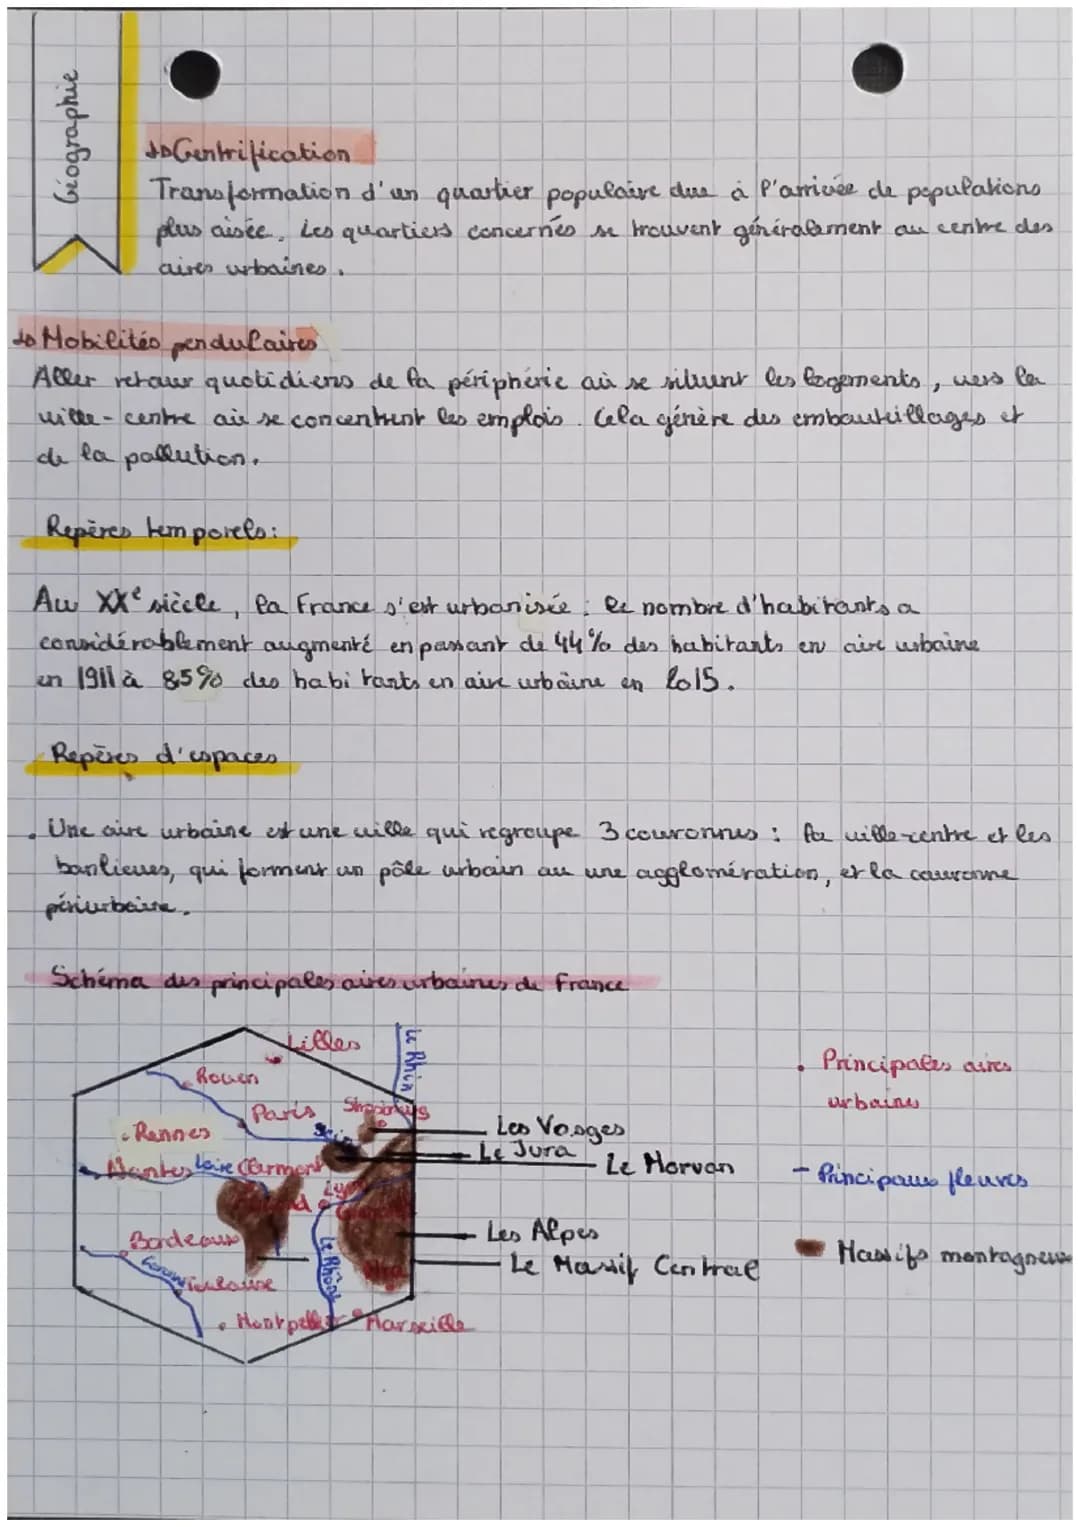 Géographie
↳ Gentrification
Transformation d'un quartier populaire due à l'arrivée de populations
plus aisée. Les quartiers concernés se trouvent généralement au centre des
aires urbaines.
↳ Mobilités pendulaires
Aller retour quotidiens de la périphérie où se situent les logements, vers la
ville-centre où se concentrent les emplois. Cela génère des embouteillages et
de la pollution.
Repères temporels:
Au XXe siècle, la France s'est urbanisée : le nombre d'habitants a
considérablement augmenté en passant de 44% des habitants en aire urbaine
en 1911 à 85% des habitants en aire urbaine en 2015.
Repères d'espaces
. Une aire urbaine est une ville qui regroupe 3 couronnes : la ville-centre et les
banlieues, qui forment un pôle urbain ou une agglomération, et la couronne
périurbaine.
Schéma des principales aires urbaines de France
Lilles
Le Rhin
Rouen
Paris
Rennes
Nantes
Loire
Clermont
Lyon
Bordeaux
Toulouse
Le Rhône
Montpellier
Marseille
Les Vosges
Le Jura
Le Morvan
Les Alpes
Le Massif Central
. Principales aires
urbaines
- Principaux fleuves
Massifs montagneux